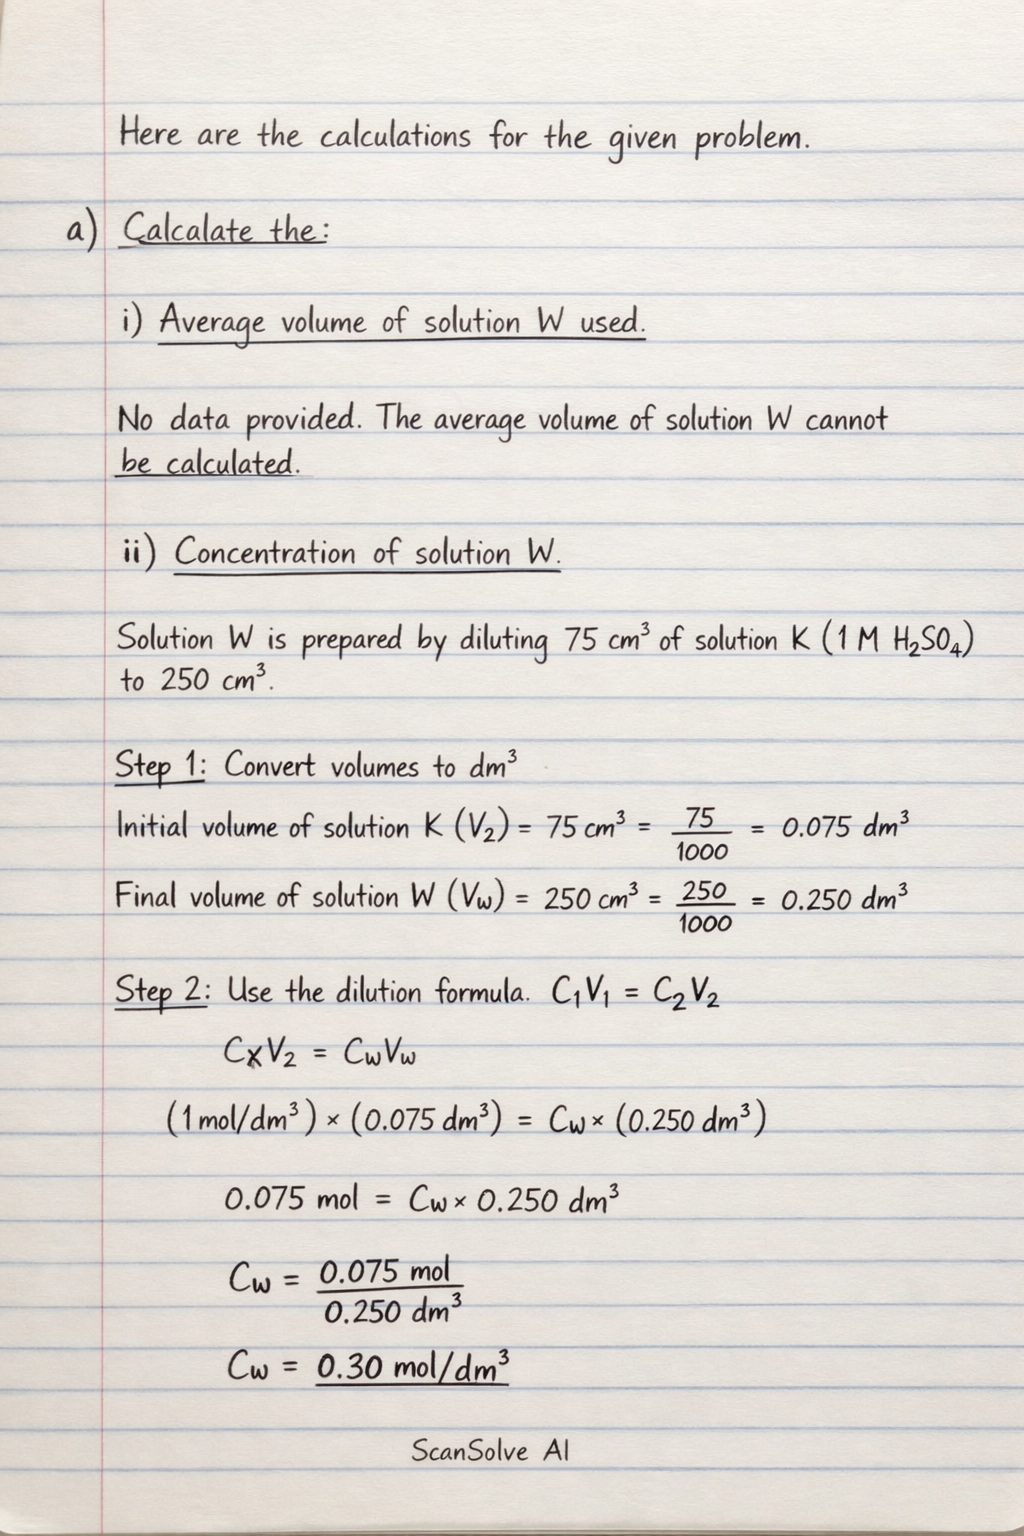 Here are the calculations for the given problem.
a) Calcalate the:
i) Average volume of solution W used.
No data provided. The average volume of solution W cannot
be calculated.
ii) Concentration of solution W.
Solution W is prepared by diluting 75 cm³ of solution K (1 M H₂SO₄)
to 250 cm³.
Step 1: Convert volumes to dm³
Initial volume of solution K (V₂) = 75 cm³ = 75/1000 = 0.075 dm³
Final volume of solution W (Vw) = 250 cm³ = 250/1000 = 0.250 dm³
Step 2: Use the dilution formula. C₁V₁ = C₂V₂
CxV₂ = CwVw
(1 mol/dm³) × (0.075 dm³) = Cw × (0.250 dm³)
0.075 mol = Cw × 0.250 dm³
Cw = 0.075 mol / 0.250 dm³
Cw = 0.30 mol/dm³
ScanSolve AI